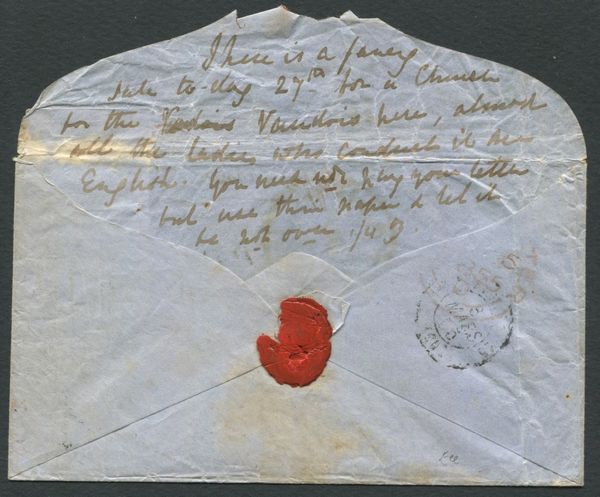 There is a fancy
sale to-day 27th for a Church
for the Vaudois here, almost
all the ladies who conduct it are
English. You need not pay your letter
but use thin paper & let it
be not over 1/4